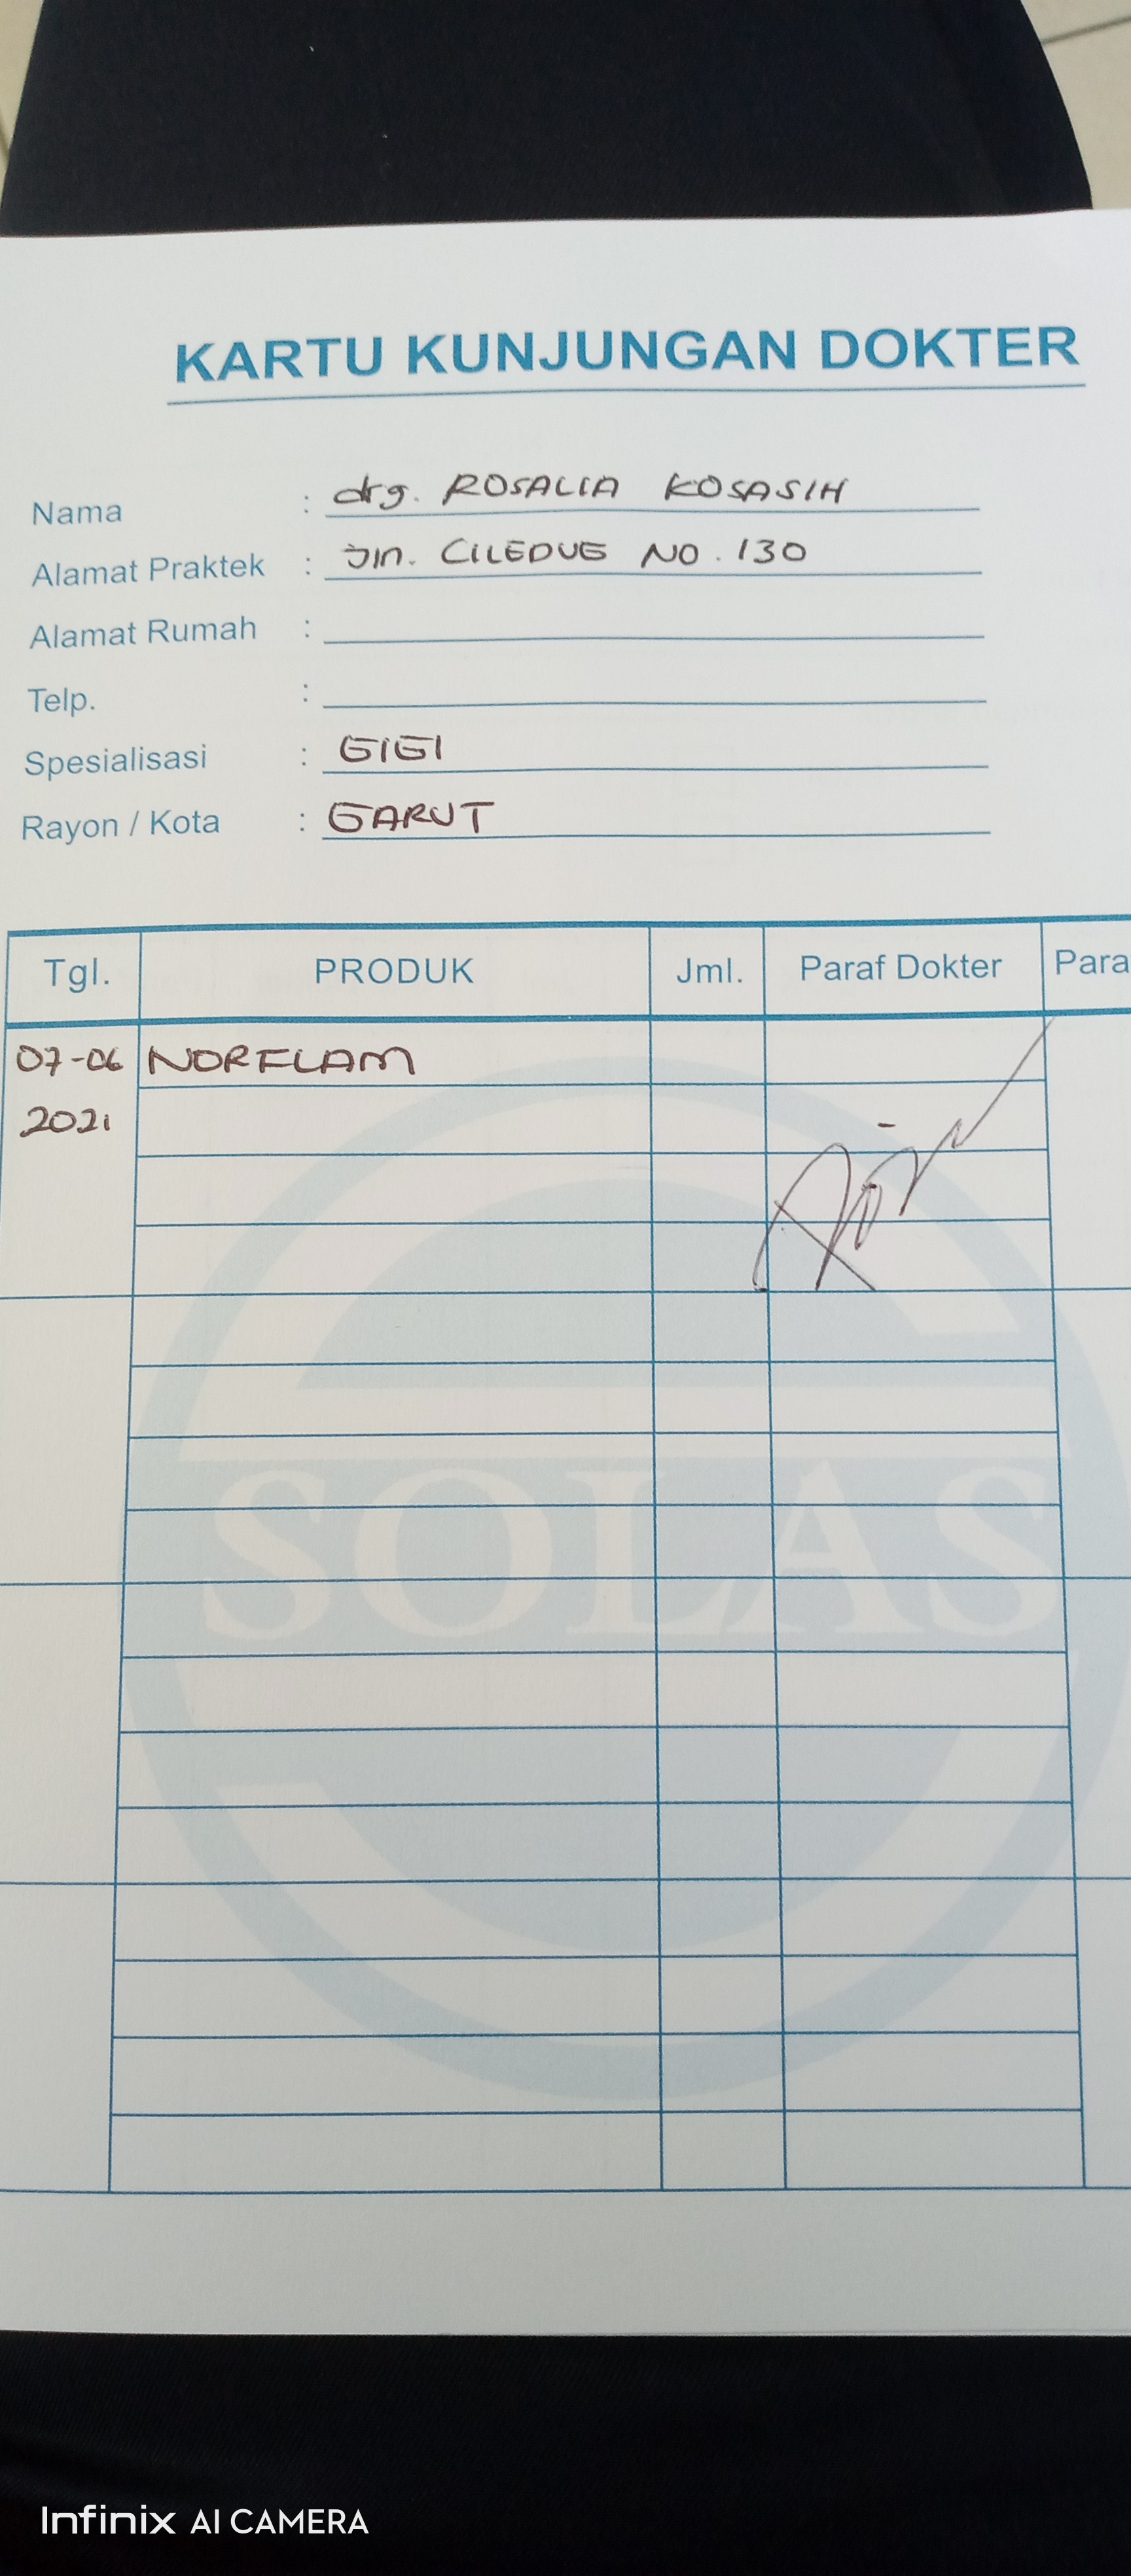 KARTU KUNJUNGAN DOKTER
Nama : drg. ROSALIA KOSASIH
Alamat Praktek : Jln. CILEDUG NO. 130
Alamat Rumah :
Telp. :
Spesialisasi : GIGI
Rayon / Kota : GARUT
Tgl. PRODUK Jml. Paraf Dokter Para
07-06 NORFLAM
2021
SOLAS
Infinix AI CAMERA